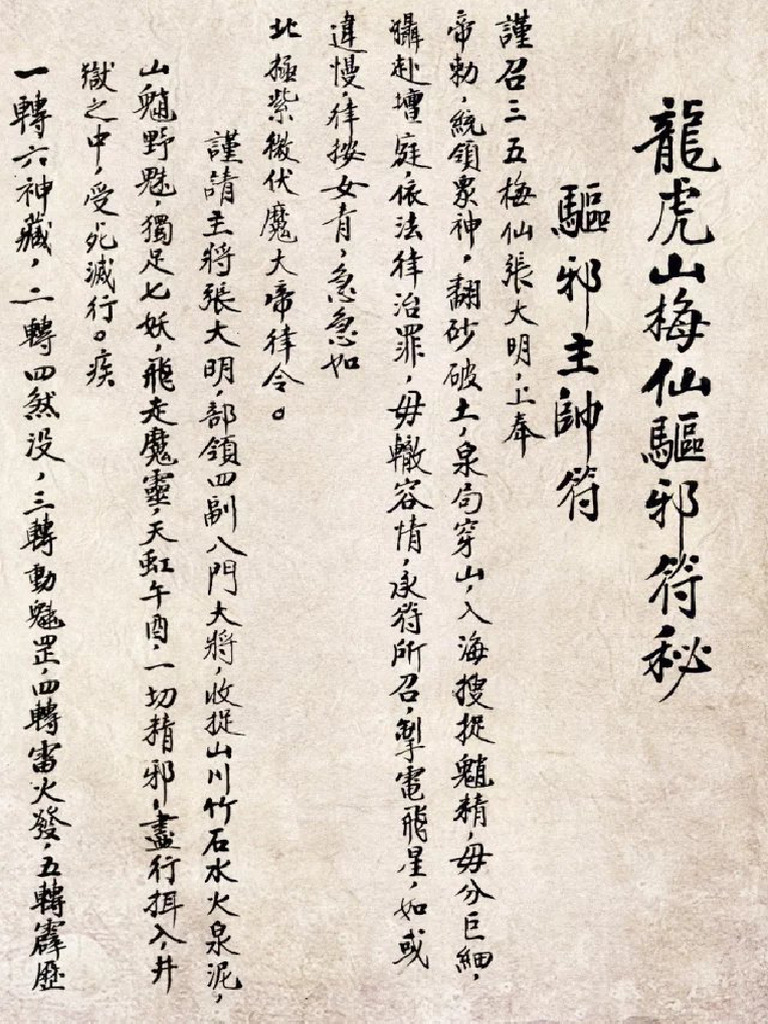 龍虎山梅仙驅邪符秘
驅邪主帥符
謹召三五梅仙張大明，上奉
帝勅，統領眾神。翻砂破土，泉局穿山，入海搜捉魈精，毋分巨細，
攝赴壇庭，依法律治罪，毋轍容情，承符所召，掣電飛星，如或
違慢，律按女青，急急如
北極紫微伏魔大帝律令。
謹請主將張大明，部領四副八門大將，收捉山川竹石水火泉泥，
山魈野魅，獨足七妖，飛走魔靈，天虹午酉，一切精邪，盡行拘入，井
獄之中，受死滅行。疾
一轉六神藏，二轉四煞沒，三轉動魁罡，四轉雷火發，五轉霹靂